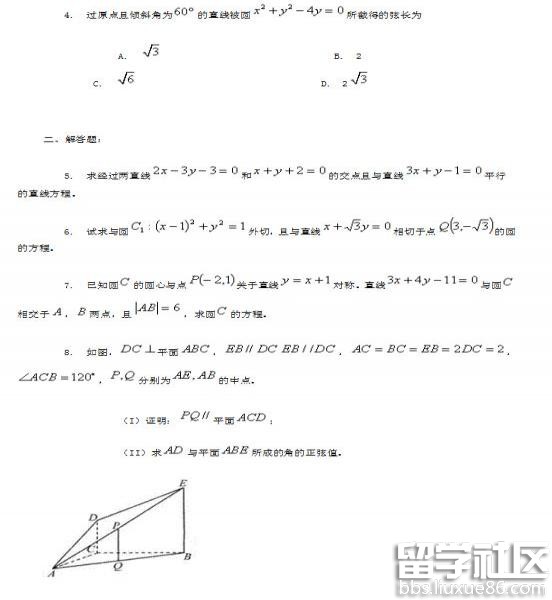 4. 过原点且倾斜角为60°的直线被圆 x² + y² − 4y = 0 所截得的弦长为
A. √3 B. 2
C. √6 D. 2√3
二、解答题:
5. 求经过两直线 2x − 3y − 3 = 0 和 x + y + 2 = 0 的交点且与直线 3x + y − 1 = 0 平行
的直线方程。
6. 试求与圆 C₁ : (x − 1)² + y² = 1 外切,且与直线 x + √3y = 0 相切于点 Q(3,−√3) 的圆
的方程。
7. 已知圆 C 的圆心与点 P(−2,1) 关于直线 y = x + 1 对称。直线 3x + 4y − 11 = 0 与圆 C
相交于 A, B 两点,且 |AB| = 6,求圆 C 的方程。
8. 如图, DC ⊥ 平面 ABC, EB // DC EB // DC, AC = BC = EB = 2DC = 2,
∠ACB = 120°, P,Q 分别为 AE, AB 的中点。
(I)证明: PQ // 平面 ACD;
(II)求 AD 与平面 ABE 所成的角的正弦值。
E
D
P
C
B
A
Q
留学社区
bbs.liuxue86.com